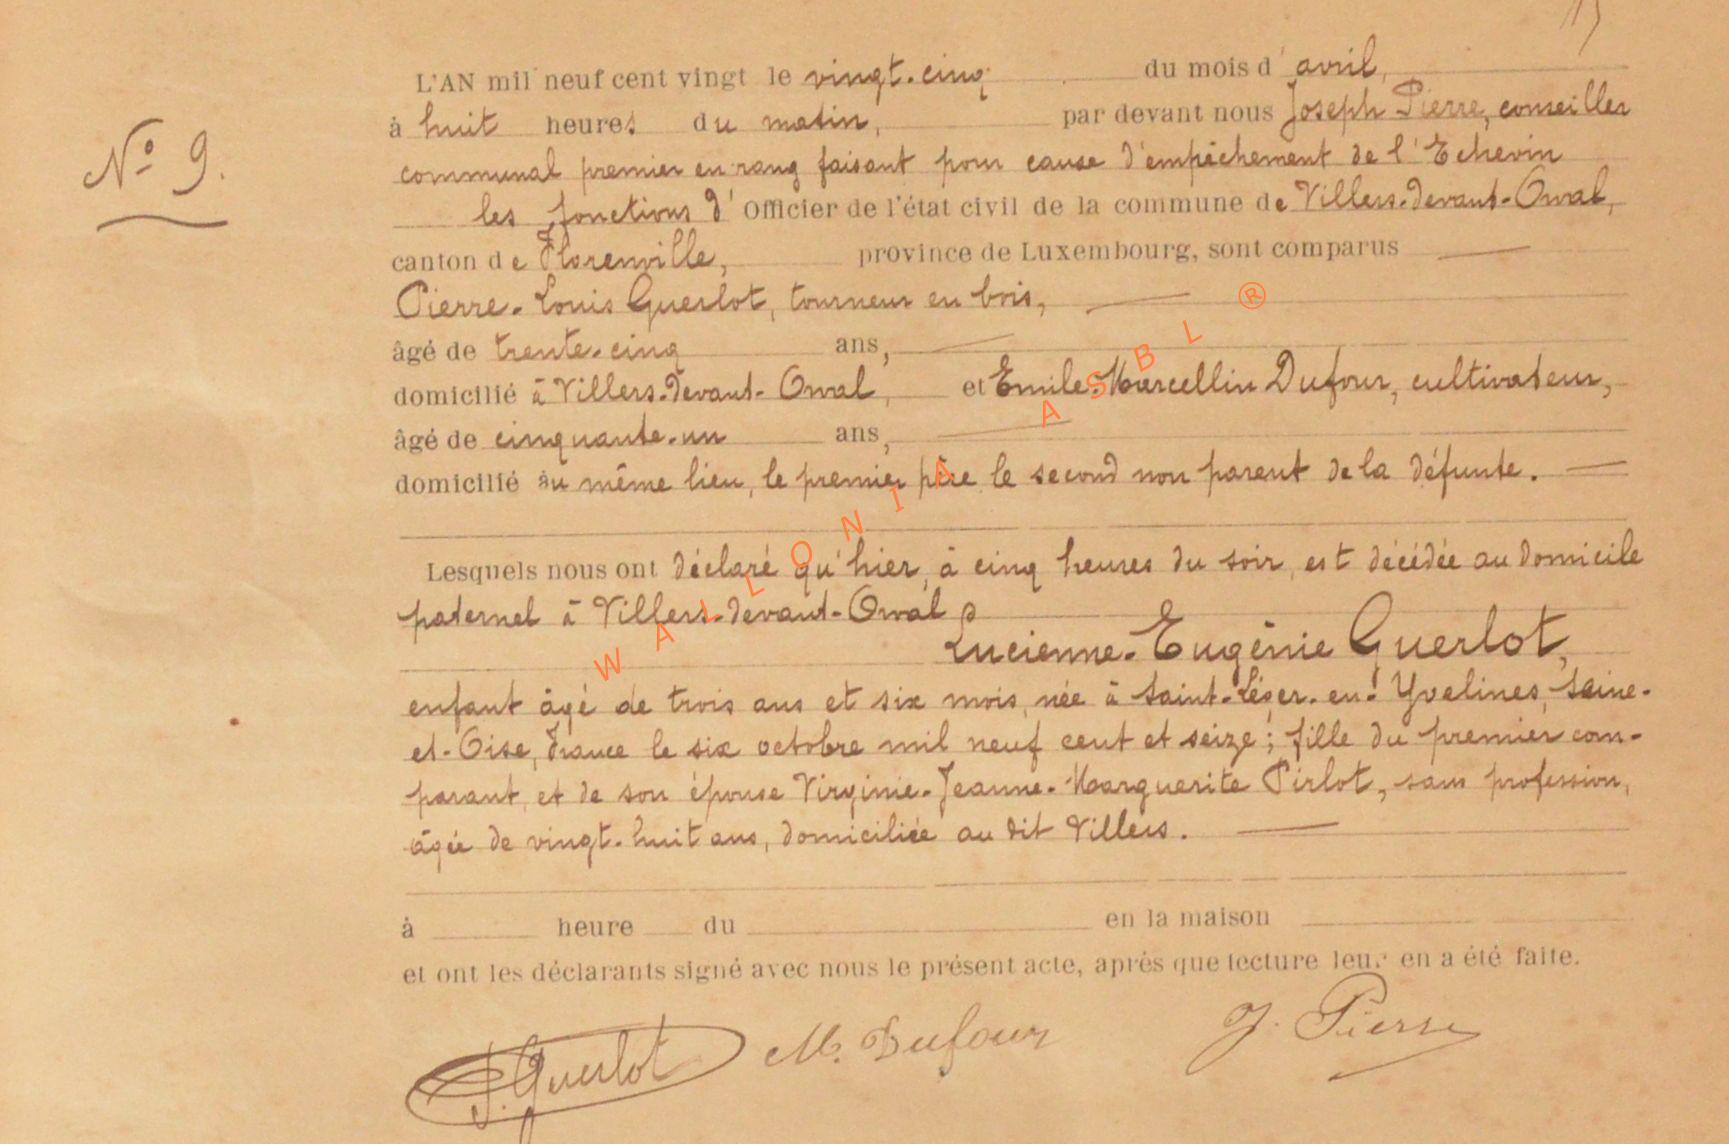 15
L'AN mil neuf cent vingt le vingt-cinq du mois d'avril,
à huit heures du matin, par devant nous Joseph Pierre, conseiller
N° 9.
communal premier en rang faisant pour cause d'empêchement de l'Echevin
les fonctions d'Officier de l'état civil de la commune de Villers-devant-Orval,
canton de Florenville, province de Luxembourg, sont comparus
Pierre-Louis Guerlot, tourneur en bois,
âgé de trente-cinq ans,
domicilié à Villers-devant-Orval, et Emile-Marcellin Dufour, cultivateur,
âgé de cinquante-un ans,
domicilié au même lieu, le premier père le second non parent de la défunte.
Lesquels nous ont déclaré qu'hier, à cinq heures du soir, est décédée au domicile
paternel à Villers-devant-Orval
Lucienne-Eugénie Guerlot,
enfant âgé de trois ans et six mois, née à Saint-Léger-en-Yvelines, Seine-
et-Oise, France le six octobre mil neuf cent et seize; fille du premier com-
parant, et de son épouse Virginie-Jeanne-Marguerite Pirlot, sans profession,
âgée de vingt-huit ans, domiciliée au dit Villers.
à heure du en la maison
et ont les déclarants signé avec nous le présent acte, après que lecture leur en a été faite.
P. Guerlot M. Dufour J. Pierre
WALLONIA ASBL ®